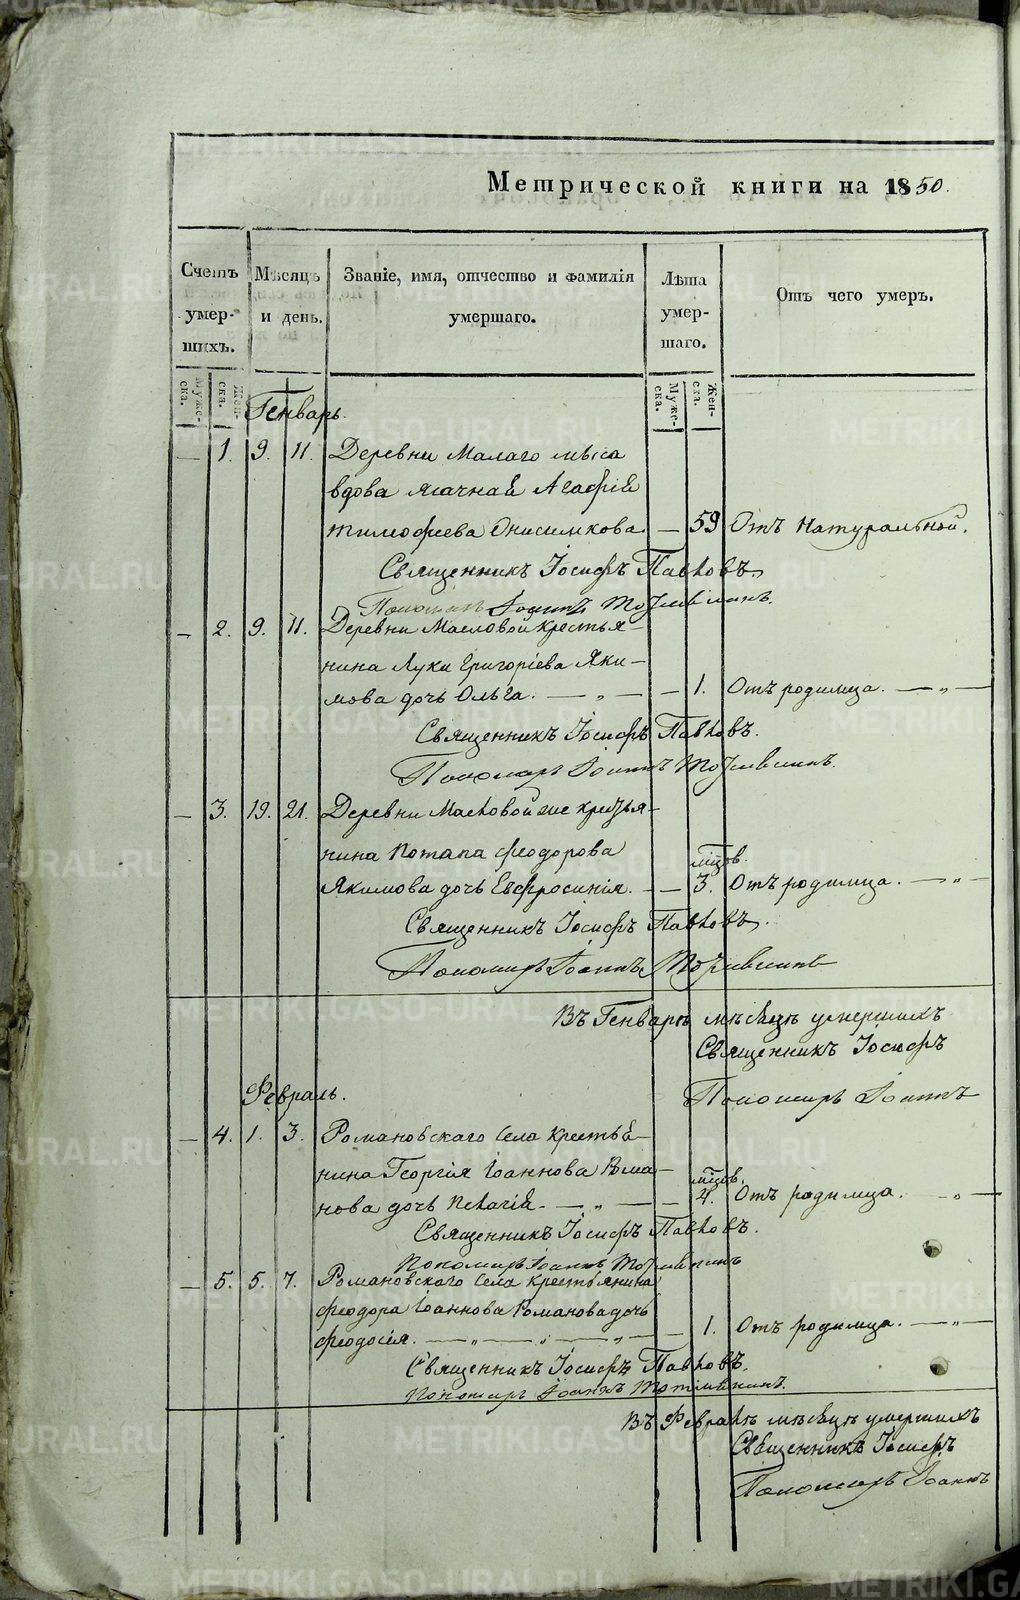 Метрической книги на 1850.
Счетъ умер-шихъ.
Мѣсяцъ и день.
Званіе, имя, отчество и фамилія умершаго.
Лѣта умер-шаго.
Отъ чего умеръ.
Муже-ска.
Жен-ска.
Муже-ска.
Жен-ска.
Генварь.
— 1. 9. 11. Деревни Малаго мыса
вдова ясачная Агафія
Тимофеева Онисимкова — 59 Отъ натуральной.
Священникъ Іосифъ Павловъ.
Пономарь Іоаннъ
— 2. 9. 11. Деревни Масловой крестья-
нина Луки Григоріева Яки-
мова дочь Ольга. — „ — — 1. Отъ родимца. — „ —
Священникъ Іосифъ Павловъ.
Пономарь Іоаннъ
— 3. 19. 21. Деревни Масловой же крестья-
нина Потапа Феодорова
мѣсяцов.
Якимова дочь Евфросинія. — — 3. Отъ родимца. — „ —
Священникъ Іосифъ Павловъ.
Пономарь Іоаннъ
Въ Генварѣ мѣсяцѣ умершихъ
Священникъ Іосифъ
Пономарь Іоаннъ
Февраль.
— 4. 1. 3. Романовскаго села крестья-
нина Георгія Іоаннова Рома-
нова дочь Пелагія. — „ — — 4. Отъ родимца. — „ —
Священникъ Іосифъ Павловъ.
Пономарь Іоаннъ
— 5. 5. 7. Романовскаго села крестьянина
Феодора Іоаннова Романова дочь
Феодосія. — „ — „ — „ — — 1. Отъ родимца. — „ —
Священникъ Іосифъ Павловъ.
Пономарь Іоаннъ
Въ Февралѣ мѣсяцѣ умершихъ
Священникъ Іосифъ
Пономарь Іоаннъ
METRIKI.GASO-URAL.RU